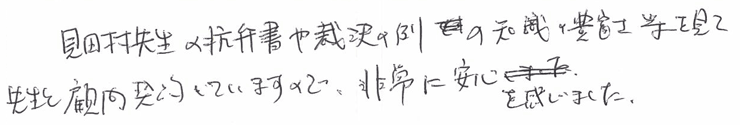 見田村先生の抗弁書や裁決の例の知識の豊富さ等を見て
先生と顧問契約していますので、非常に安心
を感じました。